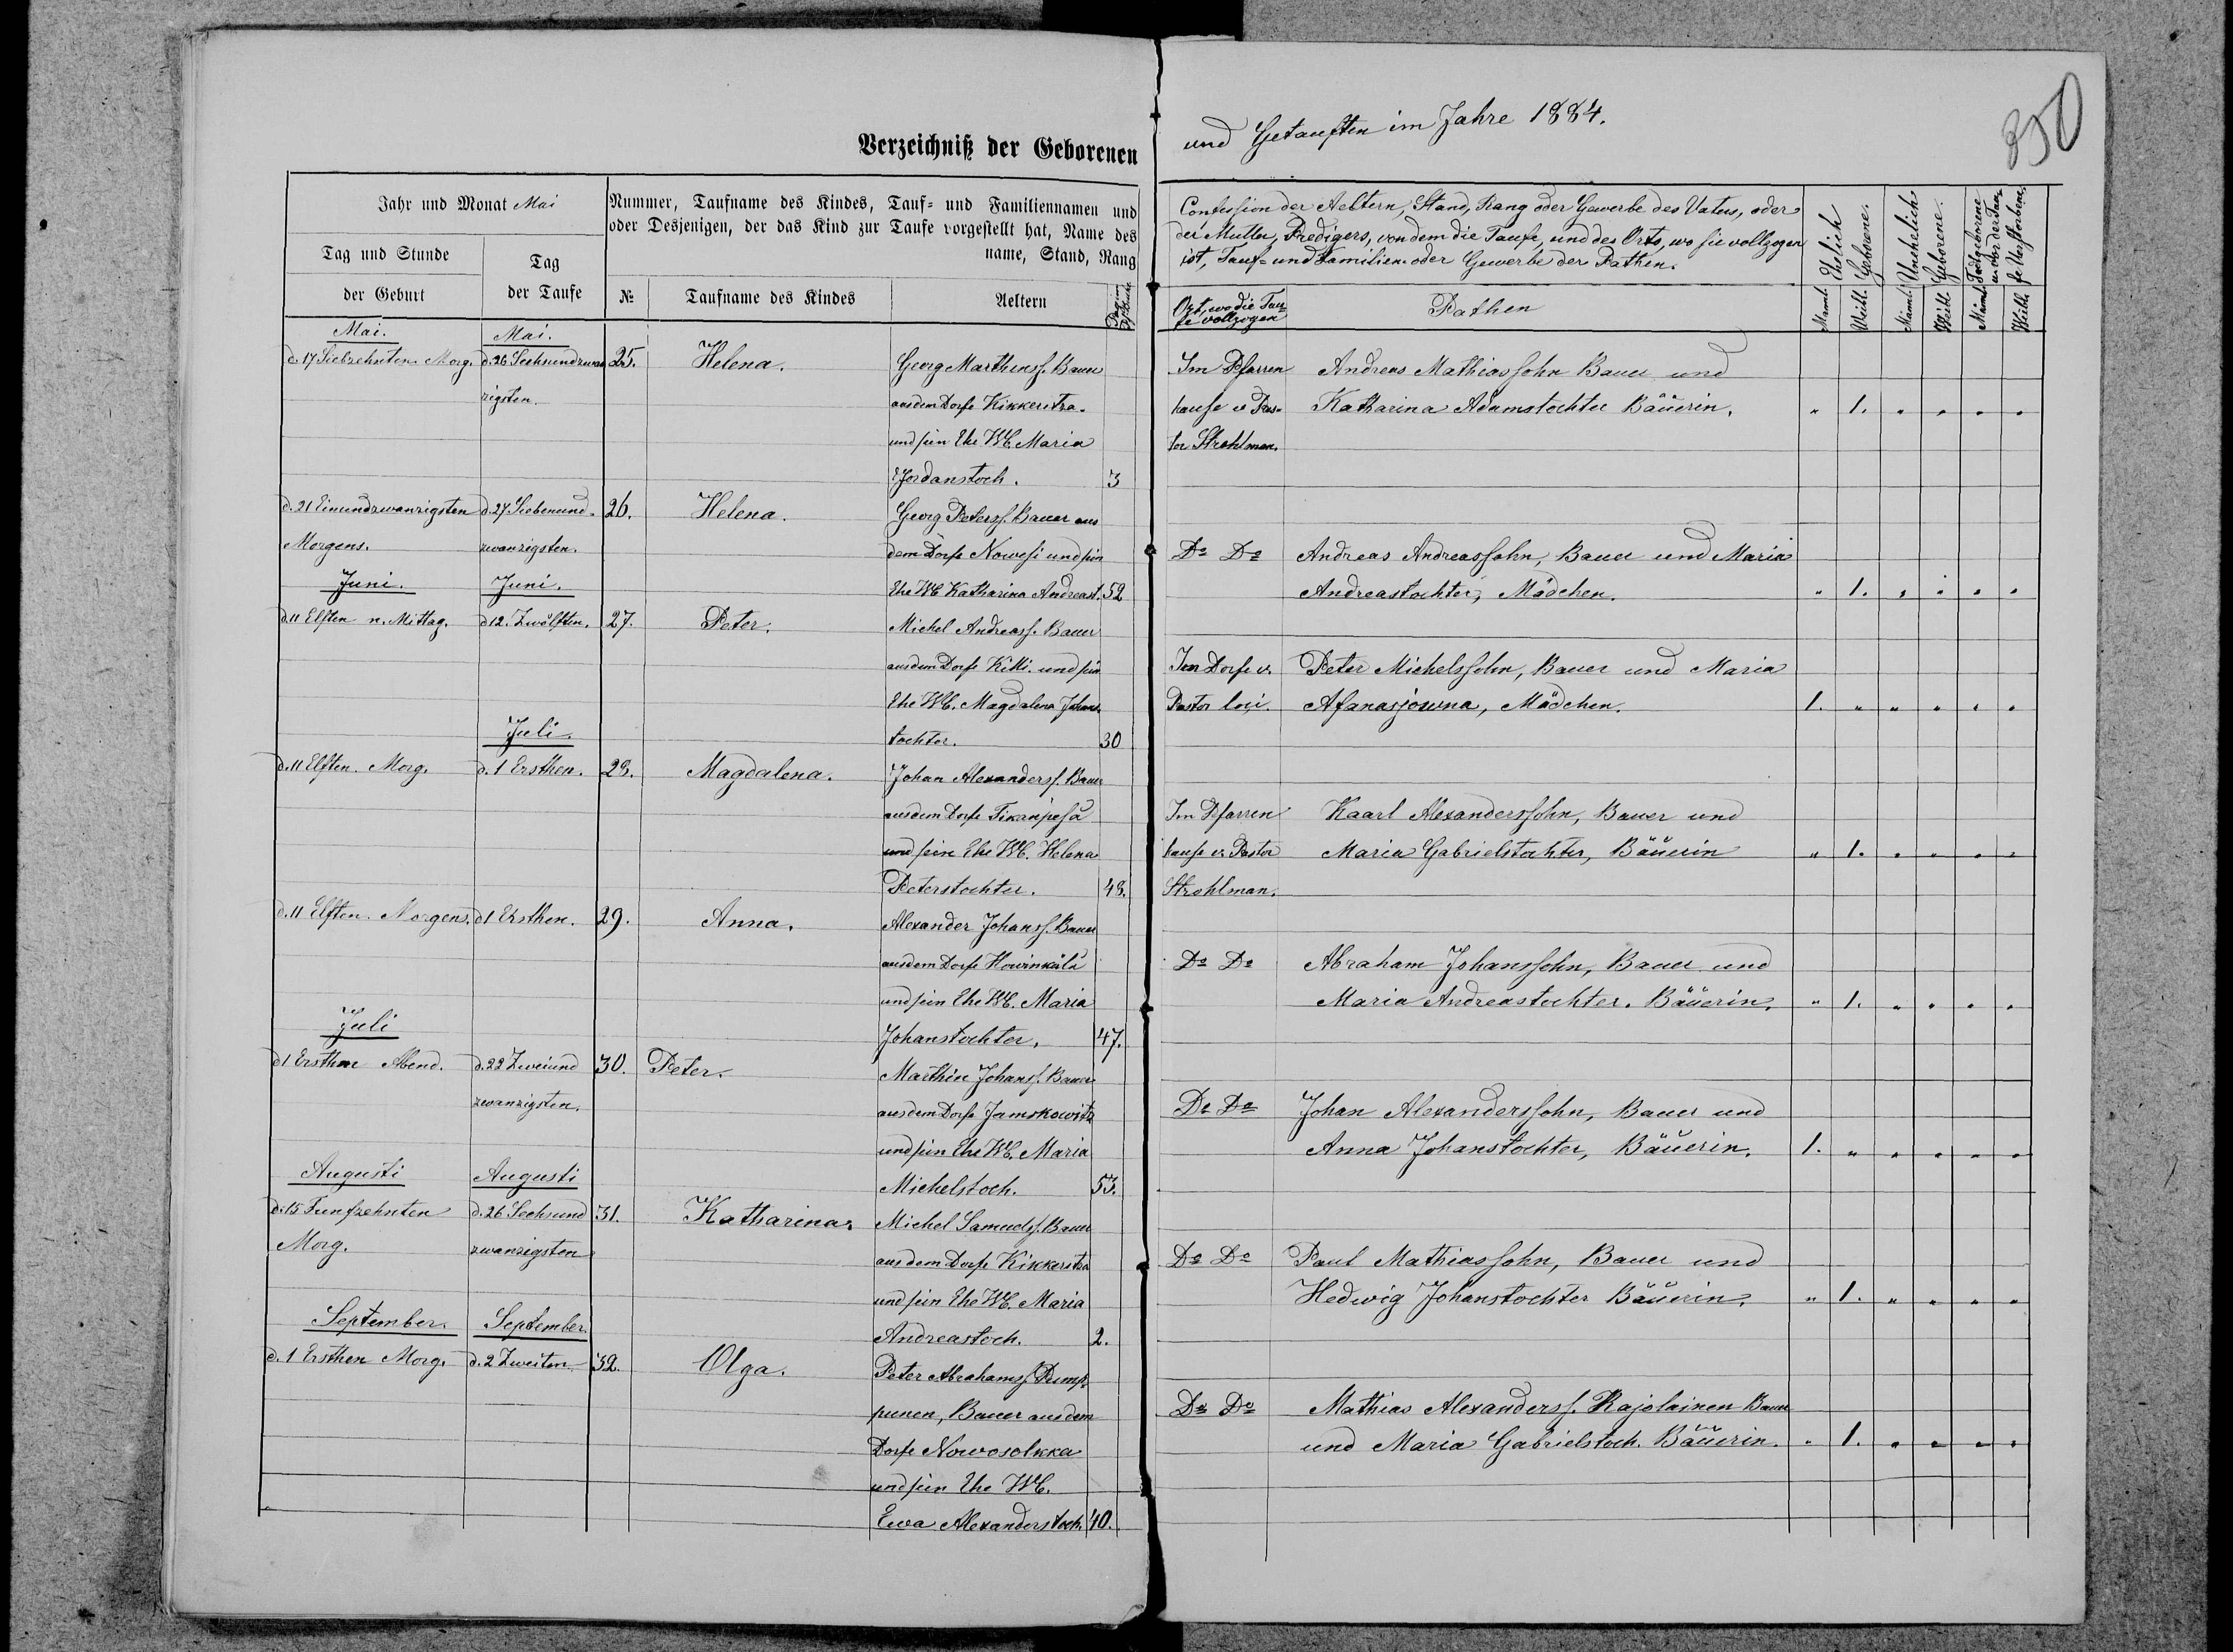 Verzeichniß der Geborenen
und Getauften im Jahre 1884.
Jahr und Monat Mai
Nummer, Taufname des Kindes, Tauf- und Familiennamen und
oder Desjenigen, der das Kind zur Taufe vorgestellt hat, Name des
name, Stand, Rang
Tag und Stunde
der Geburt
Tag
der Taufe
№
Taufname des Kindes
Aeltern
Confession der Aeltern, Stand, Rang oder Gewerbe des Vaters, oder
der Mutter, Predigers, von dem die Taufe, und des Orts, wo sie vollzogen
ist, Tauf- und Familien- oder Gewerbe der Pathen.
Ort, wo die Tau-
fe vollzogen
Pathen
Ehelich
Geborene.
Unehelich
Geborene.
Todtgeborene
u. vor der Tau-
fe Verstorbene.
Mänl.
Weibl.
Mänl.
Weibl.
Mänl.
Weibl.
Mai.
Mai.
d. 17 Siebzehnten Morg.
d. 26 Sechsundzwan
zigsten.
25.
Helena.
Georg Marthenss. Bauer
aus dem Dorfe Kikkeritza.
und sein Ehe WC Maria
Jordanstoch.
3
Im Pfarren
hause v. Pas-
tor Strohlman.
Andreas Mathiassohn Bauer und
Katharina Adamstochter Bäuerin.
" 1. " " " "
d. 21 Einundzwanzigsten
Morgens.
d. 27 Siebenund-
zwanzigsten.
26.
Helena.
Georg Peterss. Bauer aus
dem Dorfe Nowesi und sein
Ehe WC Katharina Andreast.
52
Do Do
Andreas Andreassohn, Bauer und Maria
Andreastochter, Mädchen.
" 1. " " " "
Juni.
Juni.
d. 11 Elften n. Mittag.
d 12. Zwölften.
27.
Peter.
Michel Andreass. Bauer
aus dem Dorfe Kitti. und sein
Ehe WC. Magdalena Johans-
tochter.
30
Im Dorfe v.
Pastor loci.
Peter Michelssohn, Bauer und Maria
Afanasjowna, Mädchen.
1. " " " " "
Juli.
d. 11 Elften. Morg.
d. 1 Ersthen.
28.
Magdalena.
Johan Alexanderss. Bauer
aus dem Dorfe Tikanpesä
und sein Ehe WC. Helena
Peterstochter.
48.
Im Pfarren
hause v. Pastor
Strohlman.
Kaarl Alexanderssohn, Bauer und
Maria Gabrielstochter, Bäuerin
" 1. " " " "
d. 11 Elften. Morgens.
d 1 Ersthen.
29.
Anna.
Alexander Johanss. Bauer
aus dem Dorfe Howinkälä
und sein Ehe WC. Maria
Johanstochter.
47.
Do Do
Abraham Johanssohn, Bauer und
Maria Andreastochter. Bäuerin.
" 1. " " " "
Juli
d 1 Ersthen Abend.
d. 22 Zweiund
zwanzigsten.
30.
Peter.
Marthin Johanss. Bauer
aus dem Dorfe Jamskowitz
und sein Ehe WC. Maria
Michelstoch.
53.
Do Do
Johan Alexanderssohn, Bauer und
Anna Johanstochter, Bäuerin.
1. " " " " "
Augusti
Augusti
d. 15 Funfzehnten
Morg.
d. 26 Sechsund
zwanzigsten
31.
Katharina.
Michel Samuelss. Bauer
aus dem Dorfe Kikkeritza
und sein Ehe WC. Maria
Andreastoch.
2.
Do Do
Paul Mathiassohn, Bauer und
Hedwig Johanstochter Bäuerin.
" 1. " " " "
September.
September.
d. 1 Ersthen Morg.
d. 2 Zweiten
32.
Olga.
Peter Abrahamss. Pump-
punen, Bauer aus dem
Dorfe Nowosolkka
und sein Ehe WC.
Ewa Alexanderstoch.
40.
Do Do
Mathias Alexanderss. Rajolainen Bauer
und Maria Gabrielstoch. Bäuerin.
" 1. " " " "